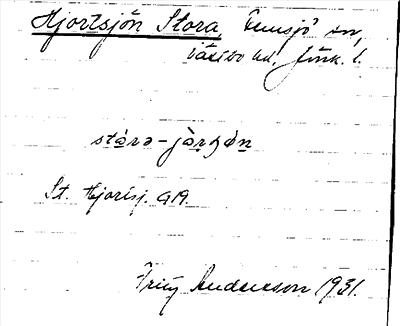 Hjortsjön Stora, Ömsjö sn,
Västbo hd. Jönk. l.
stárə-jàrʂøn
St. Hjortsj. GA.
Fritz Andersson 1931.